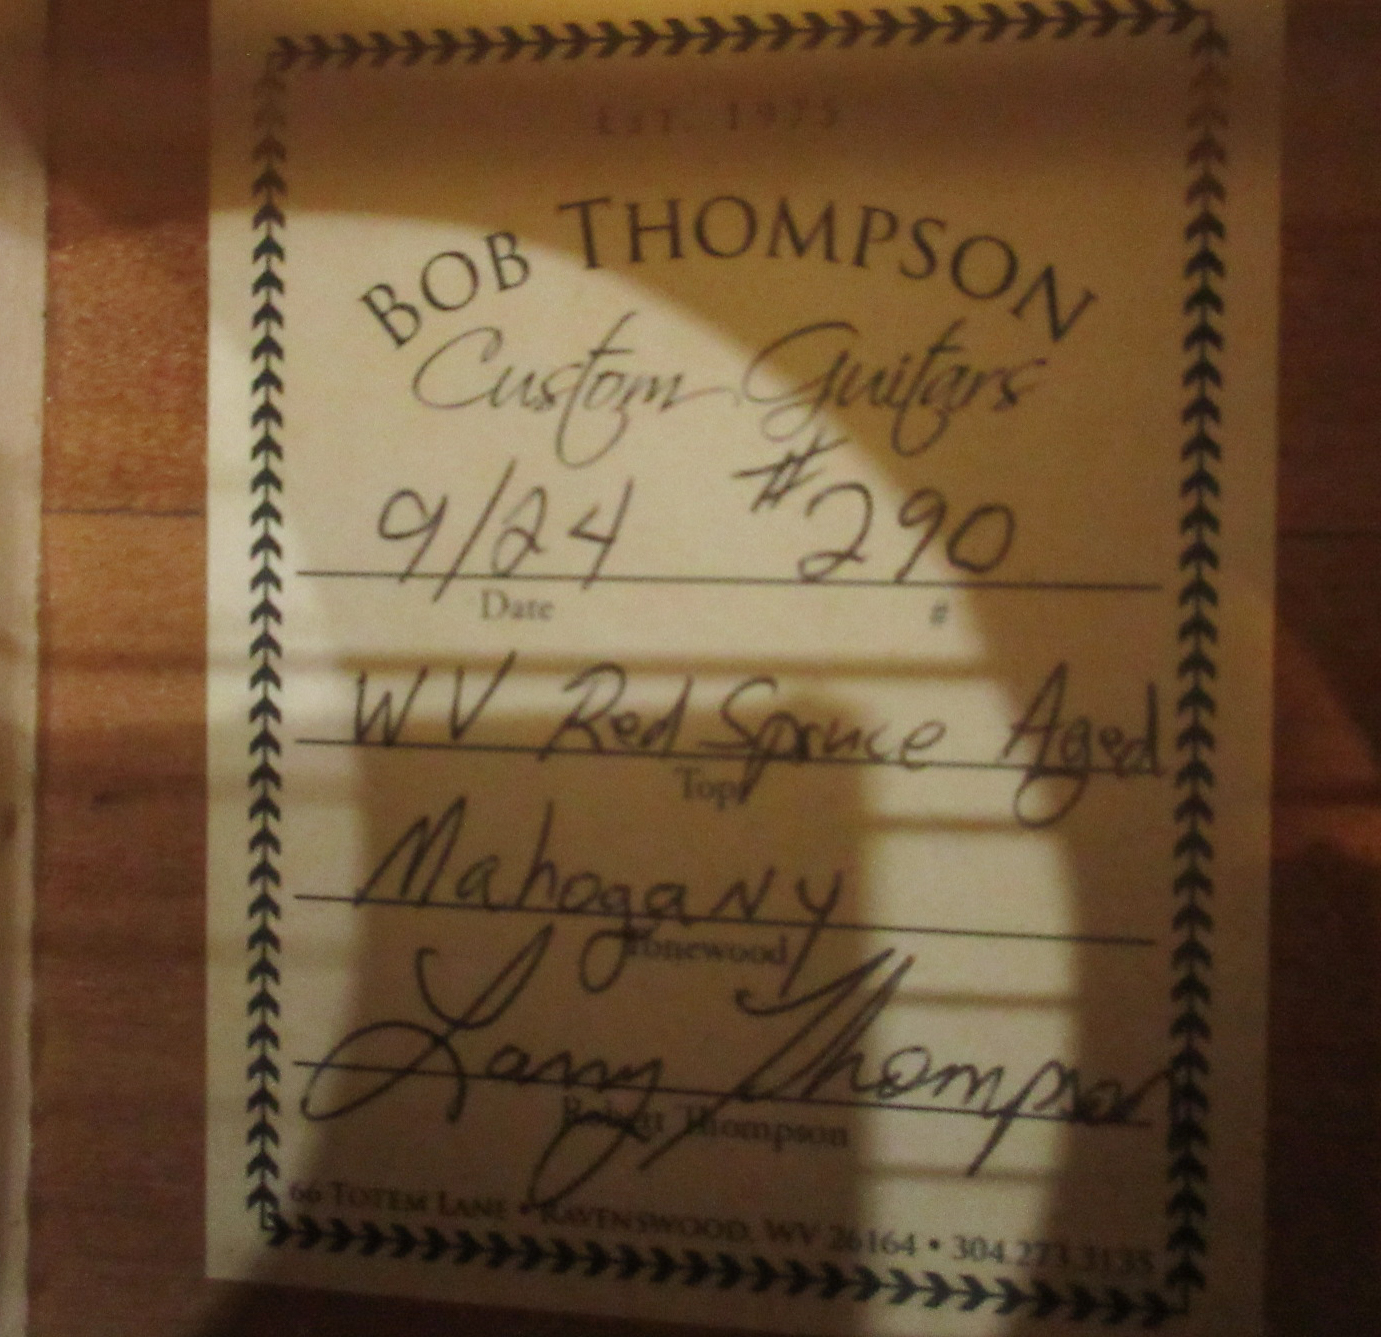 EST. 1975
BOB THOMPSON
Custom Guitars
9/24 #290
Date #
WV Red Spruce Aged
Top
Mahogany
Tonewood
Larry Thompson
Robert Thompson
66 TOTEM LANE • RAVENSWOOD, WV 26164 • 304.273.3135